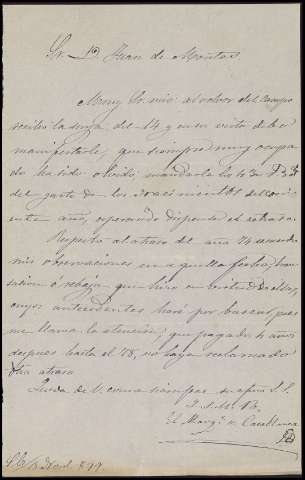 Sr. Dn. Juan de Montes.
Muy Sr. mio: al volver del campo
recibo la suya del 14 y en su vista debo
manifestarle, que siempre muy ocupa
do ha sido olvido mandarle los
del gasto de los
ente año, esperando dispense el retraso.
Respecto al atraso del año 74 recuerdo
mis observaciones en aquella fecha,
sation o rebaja que hizo en
cuyos antecedentes haré por buscar, pues
me llama la atencion, que pagado 4 años
despues hasta el 78, no haya reclamado
ese atraso
Queda de V. como siempre su afmo S. S.
Q. S. M. B.
El Marqs. de Casablanca